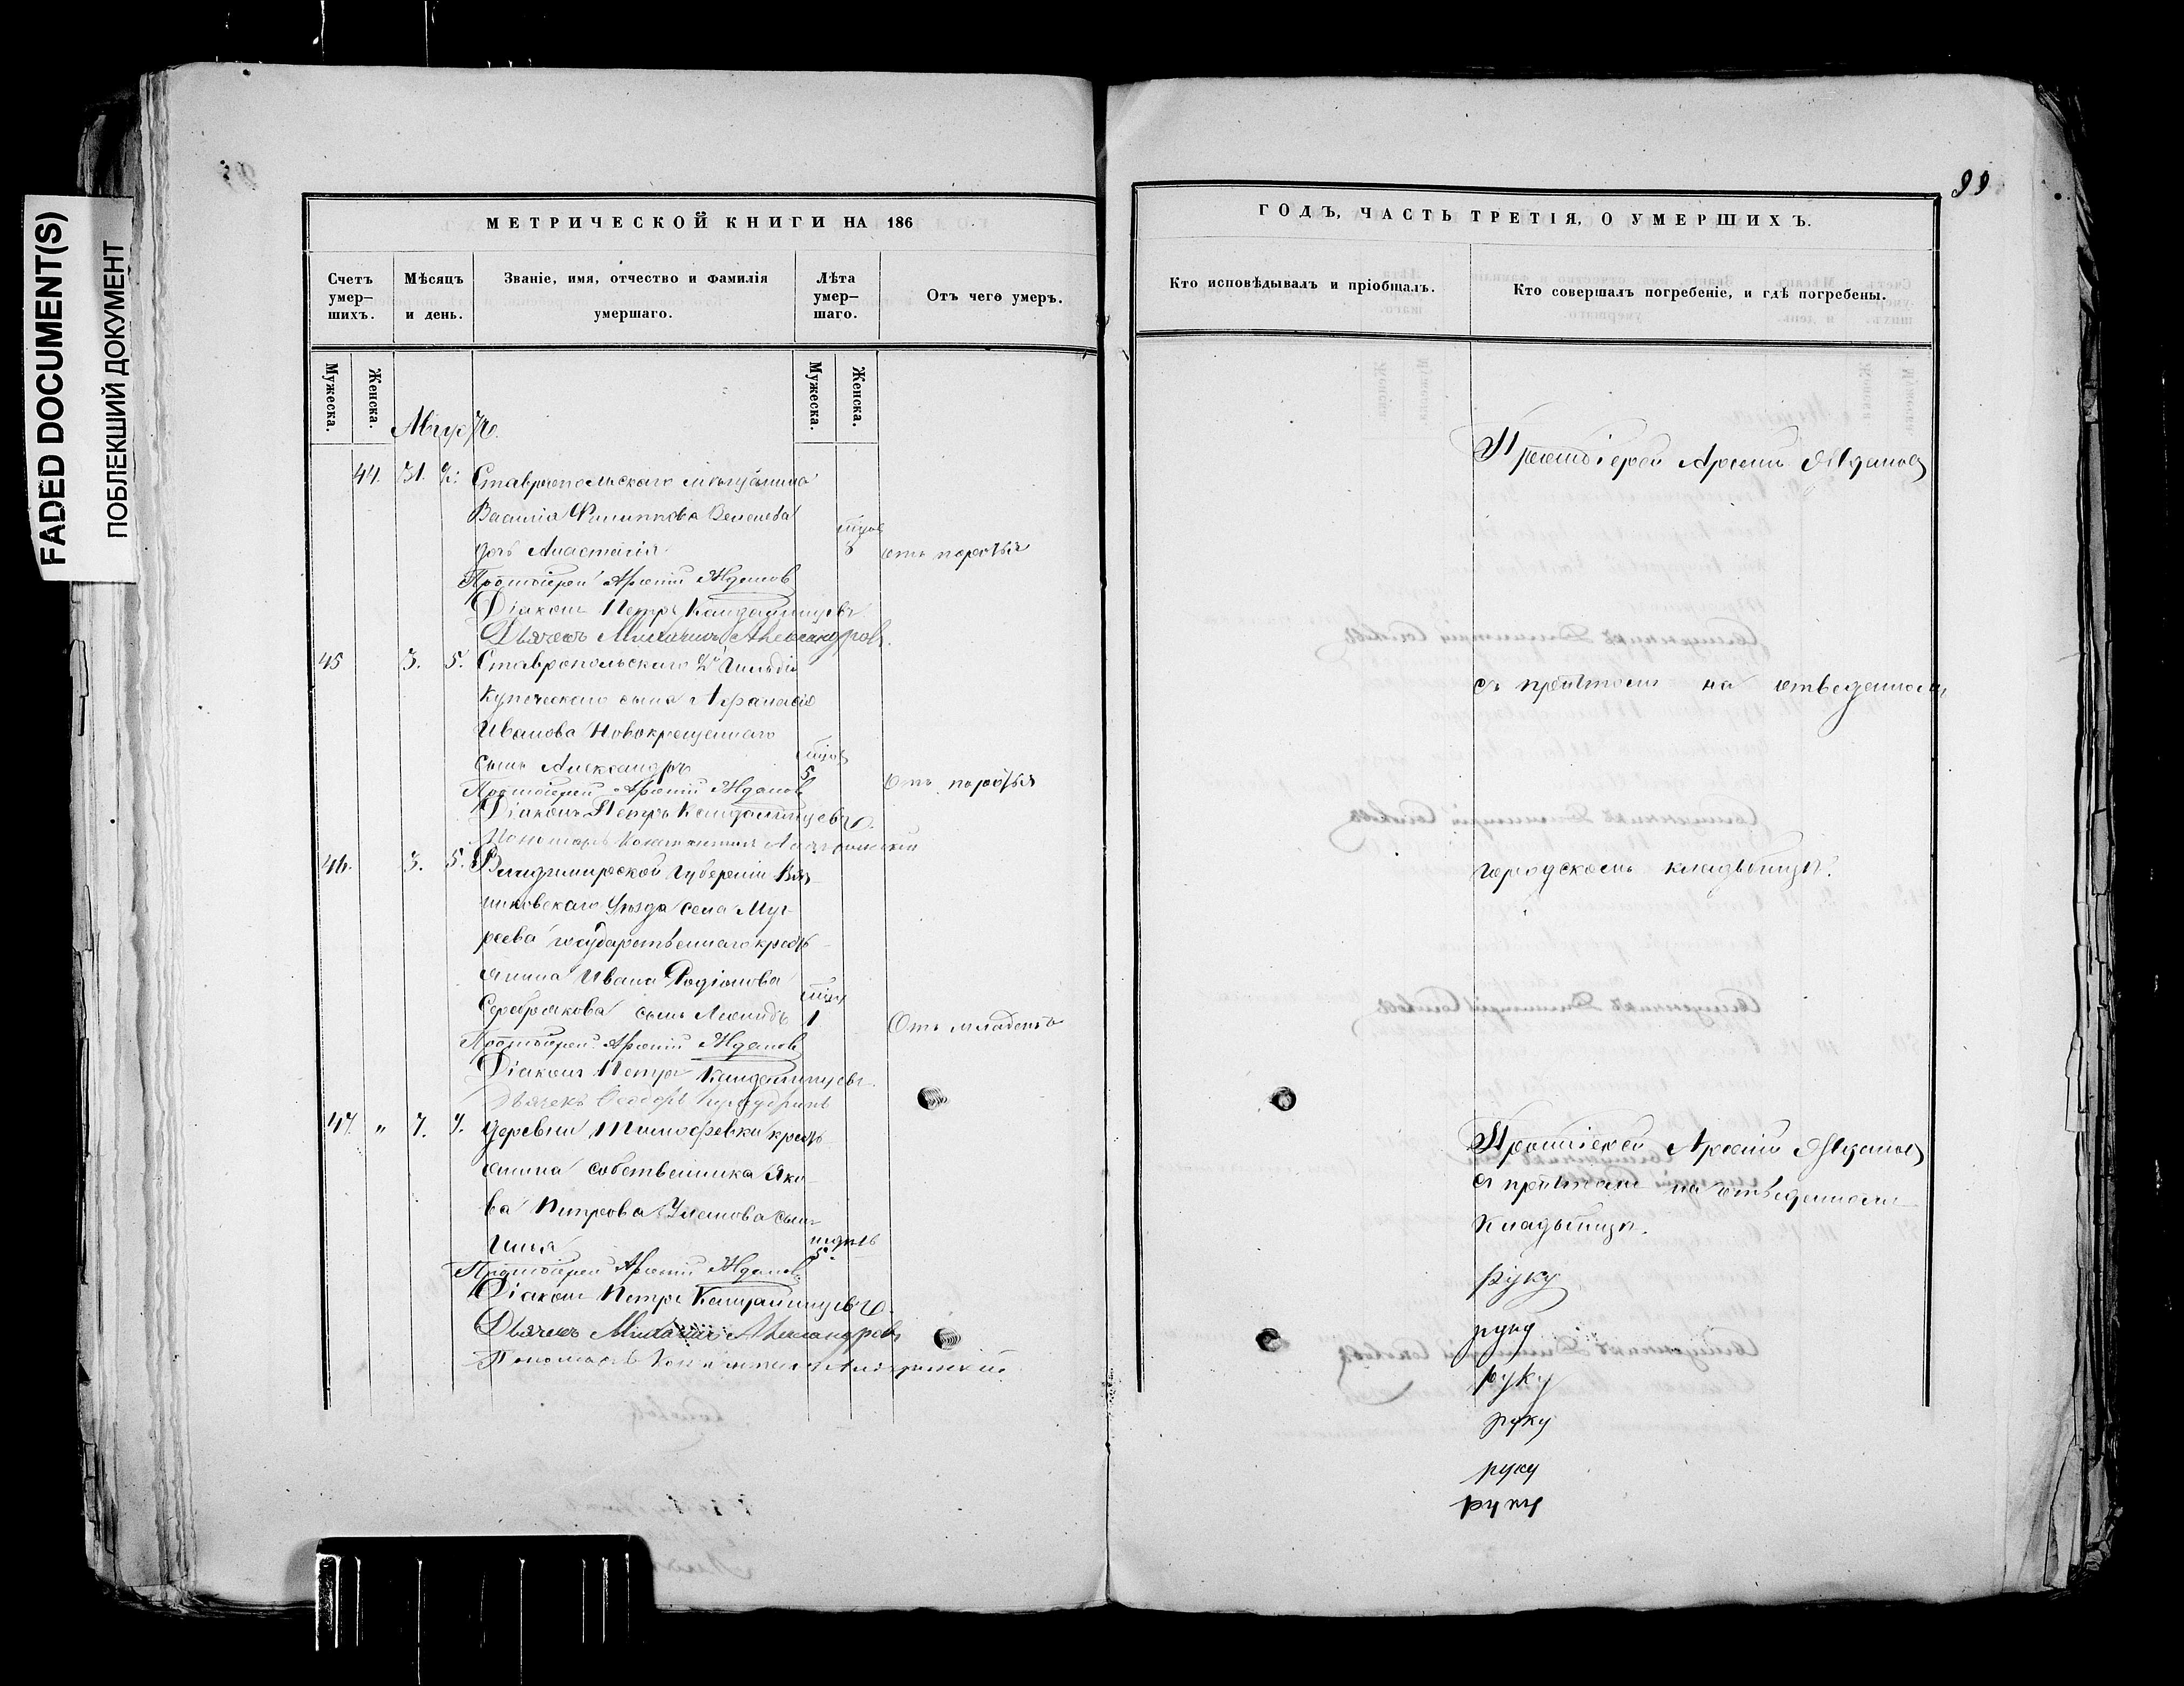 FADED DOCUMENT(S)
ПОБЛЕКШИЙ ДОКУМЕНТ
МЕТРИЧЕСКОЙ КНИГИ НА 186
Счетъ умер-шихъ.
Мѣсяцъ и день.
Званіе, имя, отчество и фамилія умершаго.
Лѣта умер-шаго.
Отъ чего умеръ.
Мужеска.
Женска.
Мужеска.
Женска.
44. 31. 2. Ставропольскаго мѣщанина
Василія Филиппова
дочь Анастасія
Протоіерей Арсеній Ждановъ
Діаконъ Петръ
Дьячекъ Михаилъ Александровъ
45 3. 5. Ставропольскаго 2й Гильдіи
Купеческаго сына Афанасія
Иванова Новокрещеннаго
сынъ Александръ 5
Протоіерей Арсеній Ждановъ
Діаконъ Петръ
Пономарь Константинъ
46. 3. 5. Владимирской Губерніи Вяз-
никовскаго Уѣзда села Муг-
реева государственнаго кресть-
янина Ивана Родіонова
Серебрякова сынъ Леонидъ 1
Отъ младенч
Протоіерей Арсеній Ждановъ
Діаконъ Петръ
Дьячекъ Ѳеодоръ
47. " 7. 9. деревни Тимофеевки кресть-
янина собственника Яко-
ва Петрова сынъ
Илія 5.
Протоіерей Арсеній Ждановъ
Діаконъ Петръ
Дьячекъ Михаилъ Александровъ
Пономарь Константинъ
99
ГОДЪ, ЧАСТЬ ТРЕТІЯ, О УМЕРШИХЪ.
Кто исповѣдывалъ и пріобщалъ.
Кто совершалъ погребеніе, и гдѣ погребены.
Протоіерей Арсеній Ждановъ
съ причтомъ на отведенномъ
городскомъ кладбищѣ.
Протоіерей Арсеній Ждановъ
съ причтомъ на отведенномъ
кладбищѣ.
руку
руку
руку
руку
руку
руку